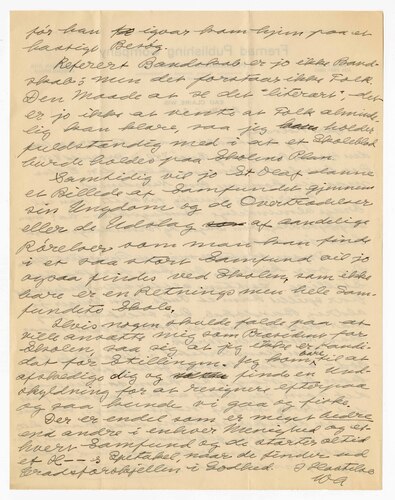 før han igjen kom hjem paa et
hastigt Besøg.
Referert Bandskab er jo ikke Band-
skab; men det forstaar ikke Folk.
Den Maade at se det "literært", det
er jo ikke at vente at Folk almin-
delig kan klare, saa jeg holder
fuldstændig med i at et Skoleblad
burde holdes paa Skolens Plan.
Samtidig vil jo St Olaf danne
et Billede af Samfundet gjennem
sin Ungdom og de Overtrædelser
eller de Udslag af aandelige
Rørelser som man kan finde
i et saa stort Samfund vil jo
ogsaa findes ved Skolen, som ikke
bare er en Retnings men hele Sam-
fundets Skole.
Hvis nogen skulde falde paa at
ville ansætte mig som for
Skolen, saa sig at jeg ikke er Kandi-
dat for Stillingen. Jeg kom bare til at
afskedige dig og finde en Und-
skyldning for at resignere efterpaa
og saa kunde vi gaa og fiske.
Der er endel som er meget bedre
end andre i enhver Menighed og et-
hvert Samfund og de starter altid
et H---s Spetakel, naar de finder ud
Gradsforskjellen i Godhed.
W A